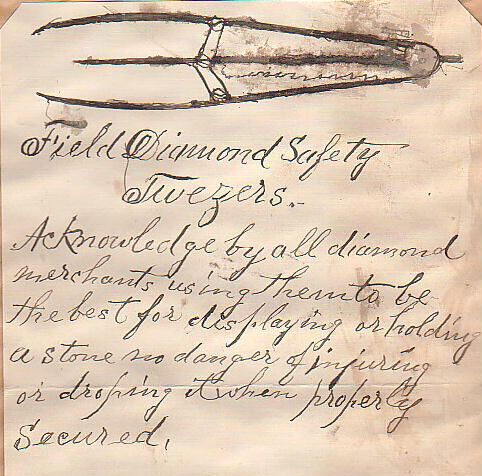 Field Diamond Safety
Twezers.
Acknowledge by all diamond
merchants using them to be
the best for displaying or holding
a stone no danger of injuring
or droping it when properly
secured.